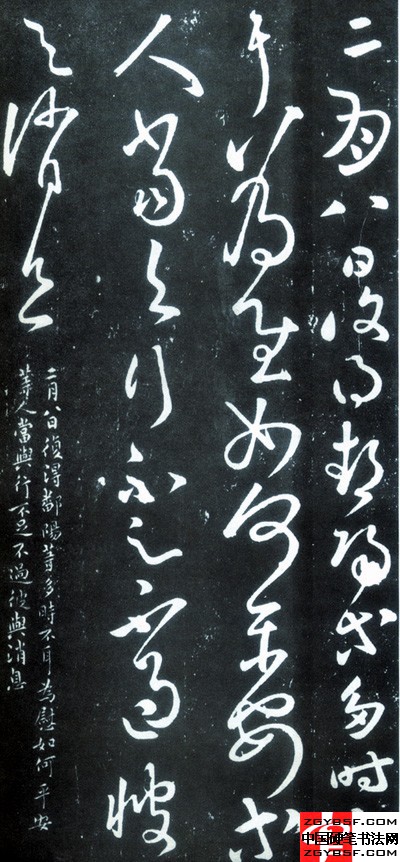 二月八日復得鄱陽等多時
不耳為慰如何平安等
人當與行不足不過彼
與消息
二月八日復得鄱陽等多時不耳為慰如何平安
等人當與行不足不過彼與消息
ZGYBSF.COM
中国硬笔书法网
ZGYBSF.COM